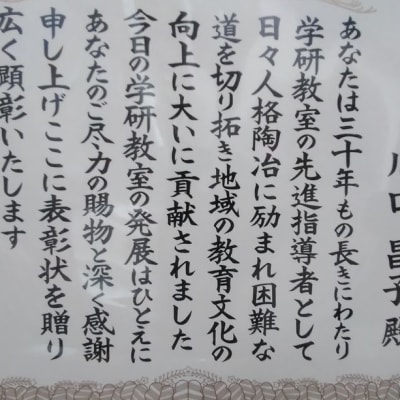 川口昌子殿
あなたは三十年もの長きにわたり
学研教室の先進指導者として
日々人格陶冶に励まれ困難な
道を切り拓き地域の教育文化の
向上に大いに貢献されました
今日の学研教室の発展はひとえに
あなたのご尽力の賜物と深く感謝
申し上げここに表彰状を贈り
広く顕彰いたします